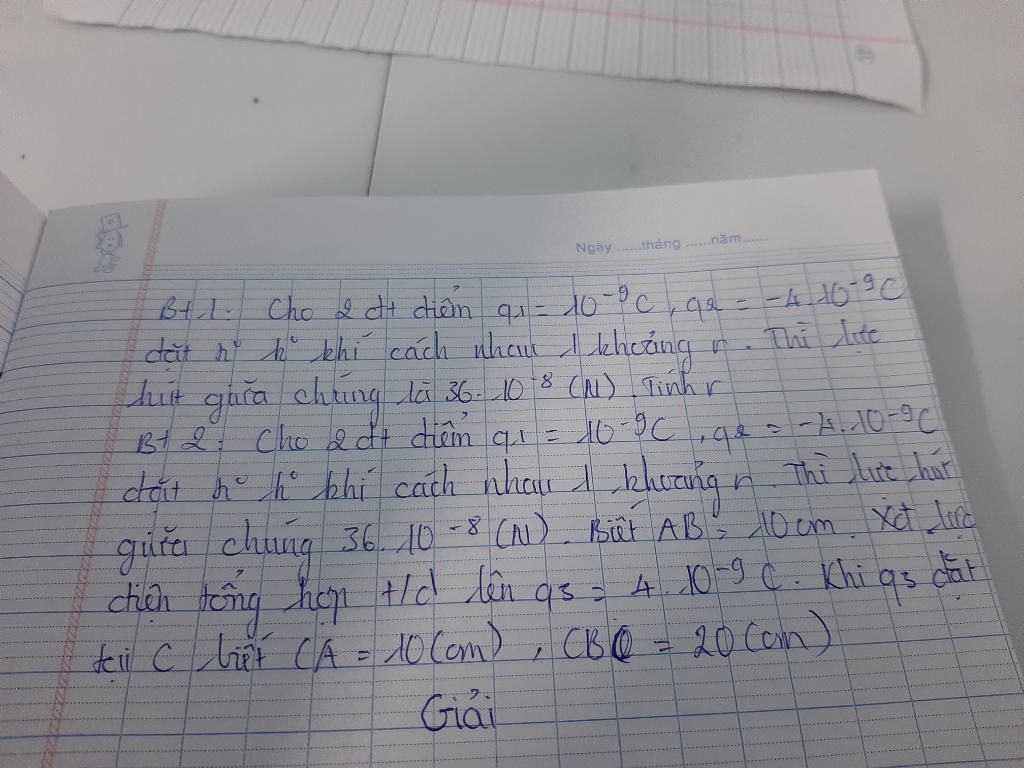 Ngày ......tháng ......năm......
Bt 1: Cho 2 đt điểm q1 = 10⁻⁹C, q2 = -4.10⁻⁹C
đặt h° h° khí cách nhau 1 khoảng r. Thì lực
hút giữa chúng là 36.10⁻⁸ (N). Tính r
Bt 2: Cho 2 đt điểm q1 = 10⁻⁹C, q2 = -4.10⁻⁹C
đặt h° h° khí cách nhau 1 khoảng r. Thì lực hút
giữa chúng 36.10⁻⁸ (N). Biết AB = 10cm. Xét lực
điện tổng hợp t/d lên q3 = 4.10⁻⁹C. Khi q3 đặt
tại C biết CA = 10(cm), CB = 20(cm)
Giải